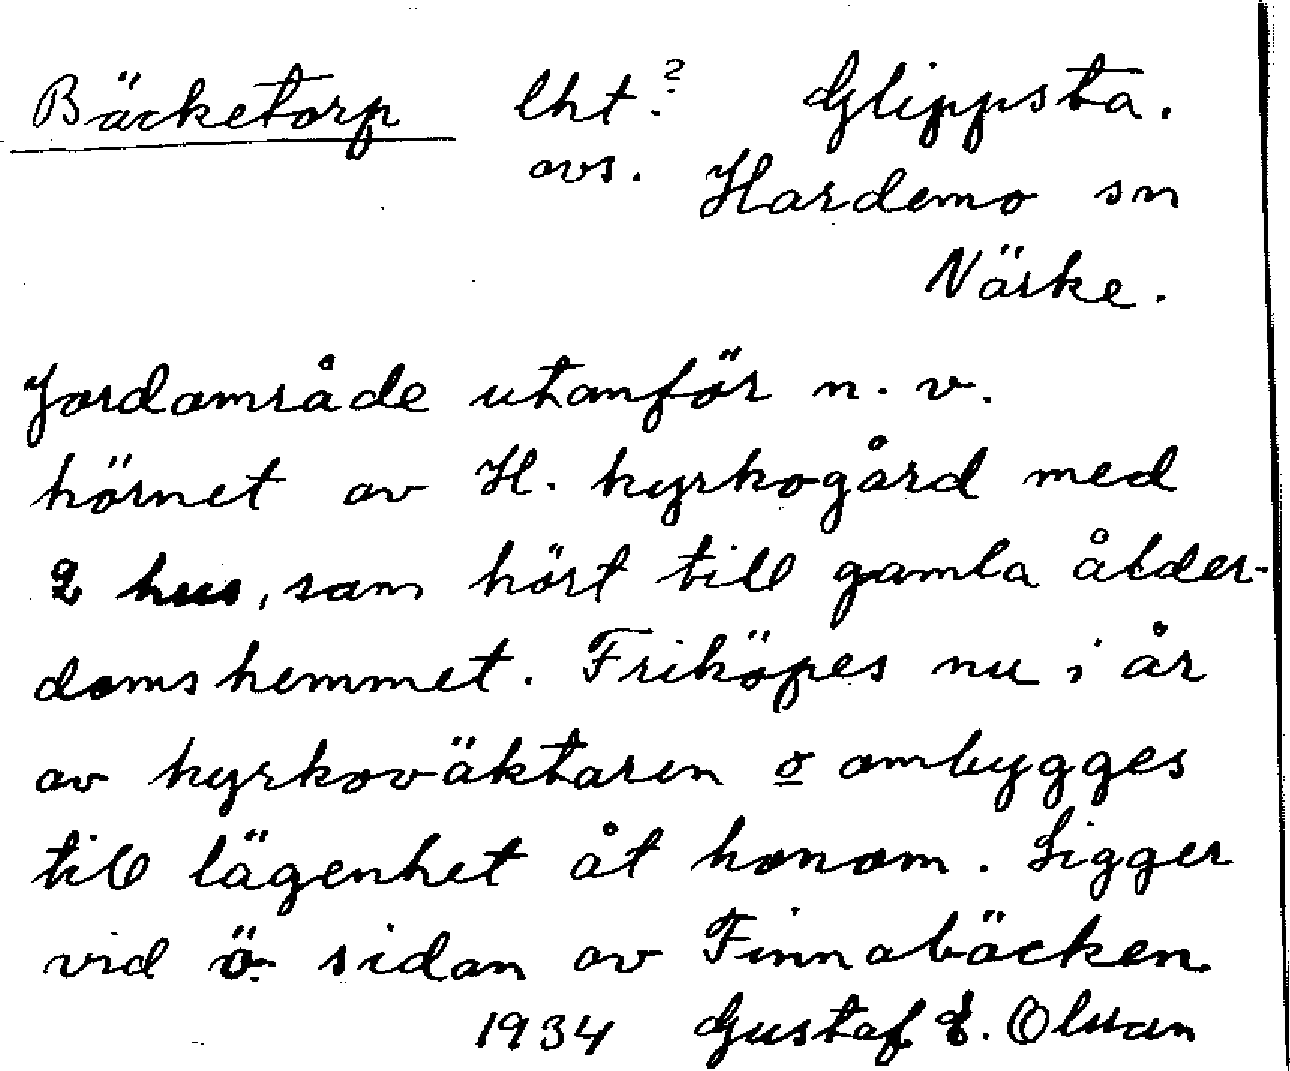 Bäcketorp lht.? Glippsta.
avs. Hardemo sn
Närke.
Jordområde utanför n. v.
hörnet av H. kyrkogård med
2 hus, som hört till gamla ålder-
domshemmet. Friköpes nu i år
av kyrkoväktaren o ombygges
till lägenhet åt honom. Ligger
vid ö. sidan av Finnabäcken.
1934 Gustaf E. Olsson